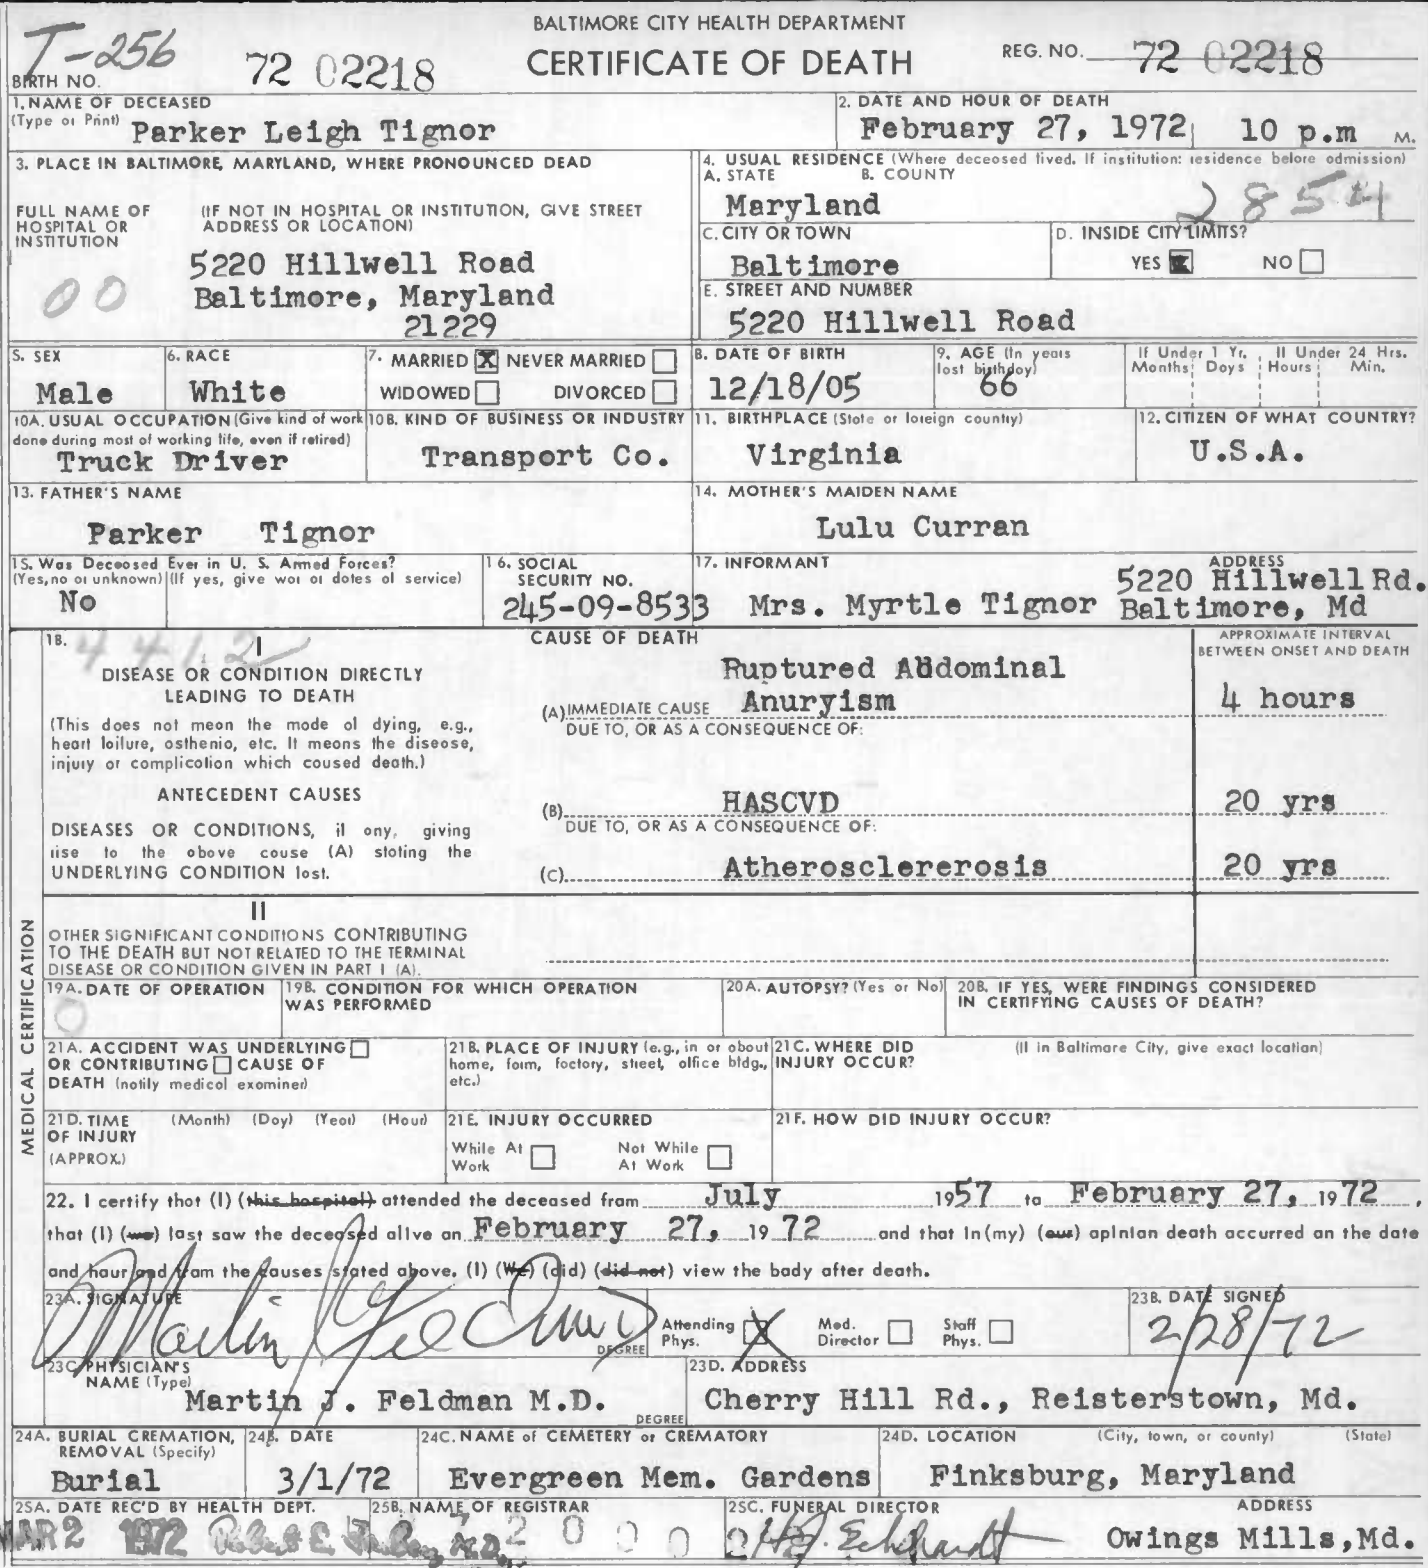 BALTIMORE CITY HEALTH DEPARTMENT
T-256
BIRTH NO. 72 02218 CERTIFICATE OF DEATH REG. NO. 72 02218
1. NAME OF DECEASED
(Type or Print) Parker Leigh Tignor
2. DATE AND HOUR OF DEATH
February 27, 1972 10 p.m M.
3. PLACE IN BALTIMORE, MARYLAND, WHERE PRONOUNCED DEAD
FULL NAME OF HOSPITAL OR INSTITUTION
(IF NOT IN HOSPITAL OR INSTITUTION, GIVE STREET
ADDRESS OR LOCATION)
00
5220 Hillwell Road
Baltimore, Maryland
21229
4. USUAL RESIDENCE (Where deceased lived. If institution: residence before admission)
A. STATE B. COUNTY
Maryland 2854
C. CITY OR TOWN
Baltimore
D. INSIDE CITY LIMITS?
YES NO
E. STREET AND NUMBER
5220 Hillwell Road
5. SEX
Male
6. RACE
White
7. MARRIED X NEVER MARRIED
WIDOWED DIVORCED
8. DATE OF BIRTH
12/18/05
9. AGE (In years
last birthday)
66
If Under 1 Yr. If Under 24 Hrs.
Months Days Hours Min.
10A. USUAL OCCUPATION (Give kind of work
done during most of working life, even if retired)
Truck Driver
10B. KIND OF BUSINESS OR INDUSTRY
Transport Co.
11. BIRTHPLACE (State or foreign country)
Virginia
12. CITIZEN OF WHAT COUNTRY?
U.S.A.
13. FATHER'S NAME
Parker Tignor
14. MOTHER'S MAIDEN NAME
Lulu Curran
15. Was Deceased Ever in U. S. Armed Forces?
(Yes, no or unknown) (If yes, give war or dates of service)
No
16. SOCIAL
SECURITY NO.
245-09-8533
17. INFORMANT ADDRESS
5220 Hillwell Rd.
Mrs. Myrtle Tignor Baltimore, Md
MEDICAL CERTIFICATION
18. 441.2
I
DISEASE OR CONDITION DIRECTLY
LEADING TO DEATH
(This does not mean the mode of dying, e.g.,
heart failure, asthenia, etc. It means the disease,
injury or complication which caused death.)
ANTECEDENT CAUSES
DISEASES OR CONDITIONS, if any, giving
rise to the above cause (A) stating the
UNDERLYING CONDITION last.
CAUSE OF DEATH
Ruptured Abdominal
(A) IMMEDIATE CAUSE Anuryism
DUE TO, OR AS A CONSEQUENCE OF:
(B) HASCVD
DUE TO, OR AS A CONSEQUENCE OF:
(C) Atherosclererosis
APPROXIMATE INTERVAL
BETWEEN ONSET AND DEATH
4 hours
20 yrs
20 yrs
II
OTHER SIGNIFICANT CONDITIONS CONTRIBUTING
TO THE DEATH BUT NOT RELATED TO THE TERMINAL
DISEASE OR CONDITION GIVEN IN PART I (A).
19A. DATE OF OPERATION
0
19B. CONDITION FOR WHICH OPERATION
WAS PERFORMED
20A. AUTOPSY? (Yes or No)
20B. IF YES, WERE FINDINGS CONSIDERED
IN CERTIFYING CAUSES OF DEATH?
21A. ACCIDENT WAS UNDERLYING
OR CONTRIBUTING CAUSE OF
DEATH (notify medical examiner)
21B. PLACE OF INJURY (e.g., in or about
home, farm, factory, street, office bldg.,
etc.)
21C. WHERE DID
INJURY OCCUR?
(If in Baltimore City, give exact location)
21D. TIME (Month) (Day) (Year) (Hour)
OF INJURY
(APPROX.)
21E. INJURY OCCURRED
While At Work Not While At Work
21F. HOW DID INJURY OCCUR?
22. I certify that (I) (this hospital) attended the deceased from July 1957 to February 27, 1972,
that (I) (we) last saw the deceased alive on February 27, 1972 and that in (my) (our) opinion death occurred on the date
and hour and from the causes stated above. (I) (We) (did) (did not) view the body after death.
23A. SIGNATURE
DEGREE
Attending Phys. X Med. Director Staff Phys.
23B. DATE SIGNED
2/28/72
23C. PHYSICIAN'S
NAME (Type)
Martin J. Feldman M.D.
DEGREE
23D. ADDRESS
Cherry Hill Rd., Reisterstown, Md.
24A. BURIAL CREMATION,
REMOVAL (Specify)
Burial
24B. DATE
3/1/72
24C. NAME of CEMETERY or CREMATORY
Evergreen Mem. Gardens
24D. LOCATION (City, town, or county) (State)
Finksburg, Maryland
25A. DATE REC'D BY HEALTH DEPT.
MAR 2 1972
25B. NAME OF REGISTRAR
Robert E.
25C. FUNERAL DIRECTOR ADDRESS
H.J. Eckhardt Owings Mills, Md.